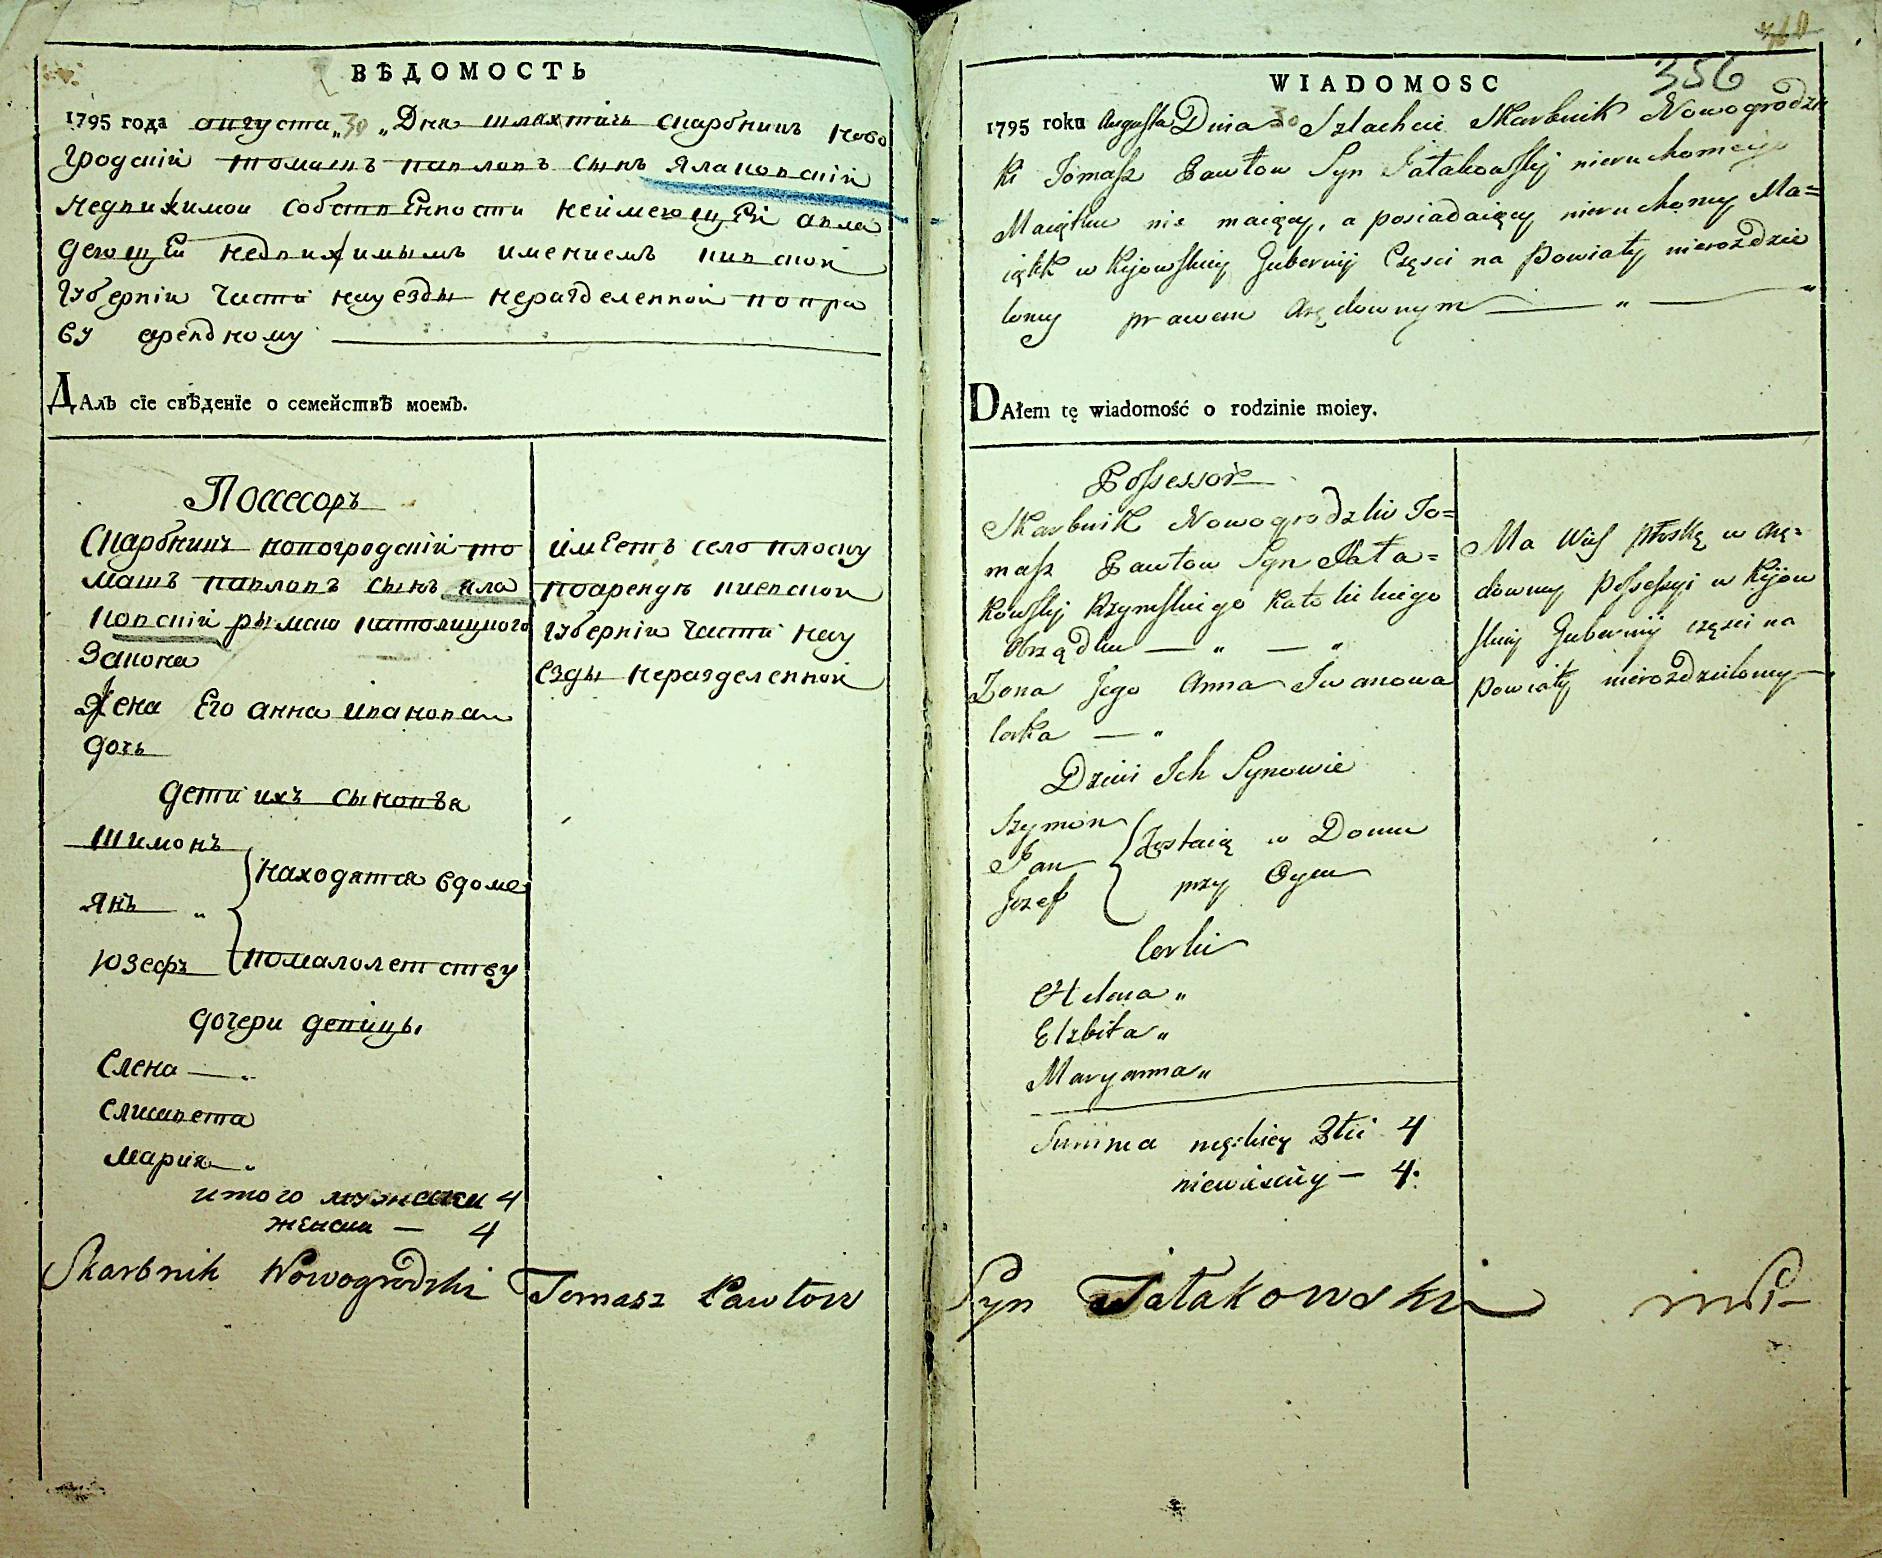 ВѢДОМОСТЬ
1795 года августа „30 „Дня шляхтичь скарбникъ Ново
гродскій томашъ павловъ сынъ Ялаковскій
недвижимой собственности неймеющей авла
деющей недвижимымъ имениемъ киевской
губерніи части науезды неразделенной попра
ву арендному
ДАлъ сїе свѣденїе о семействѣ моемъ.
Поссесоръ
Скарбникъ новогродскій то
машъ павловъ сынъ яла
ковскій рымско католицкого
закона
Жена Его анна иванова
дочь
дети ихъ сыновья
шимонъ
янъ „
юзефъ
находятся вдоме
помалолетству
дочери девицы
Елена
елисавета
мария
итого мужска 4
женска — 4
имеетъ село плоску
поаренду киевской
губерніи части нау
езды неразделенной
Skarbnik Nowogrodzki Tomasz Pawłow
356
WIADOMOSC
1795 roku Augusta Dnia 30 Szlachcic Skarbnik Nowogrodz
ki Tomasz Pawłow Syn Jałakowskij nieruchomego
Maiątku nie maiący, a posiadaiący nieruchomy Ma=
iątk w Kijowskiey Gubernij Częsci na Powiaty nierozdzie
loney prawem Arędownym — „ — „
DAłem tę wiadomość o rodzinie moiey.
Possessor
Skarbnik Nowogrodzki To=
masz Pawłow Syn Jała=
kowskij Rzymskiego Katolickiego
Obrządku — „ — „
Zona Jego Anna Iwanowa
Corka — „
Dzieci Ich Synowie
Szymon
Jan
Jozef
Zostaią w Domu
przy Oycu
Corki
Helena „
Elzbieta „
Maryanna „
Summa męskiey Płci 4
niewiesciey — 4.
Ma Wieś Płoskę w Arę=
downey Possessyi w Kijow
skiey Gubernij częsci na
Powiaty nierozdzieloney
Syn Jałakowski